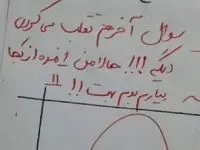 سوال آخرم تقلب می کردن
دیگه !!! حالا من از کجا
بیارم بدم بهت !!!